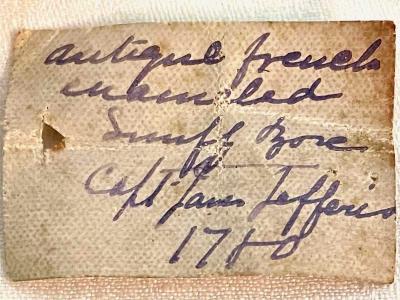 antique french
enameled
Snuff Box
of
Capt James Jefferis
1780